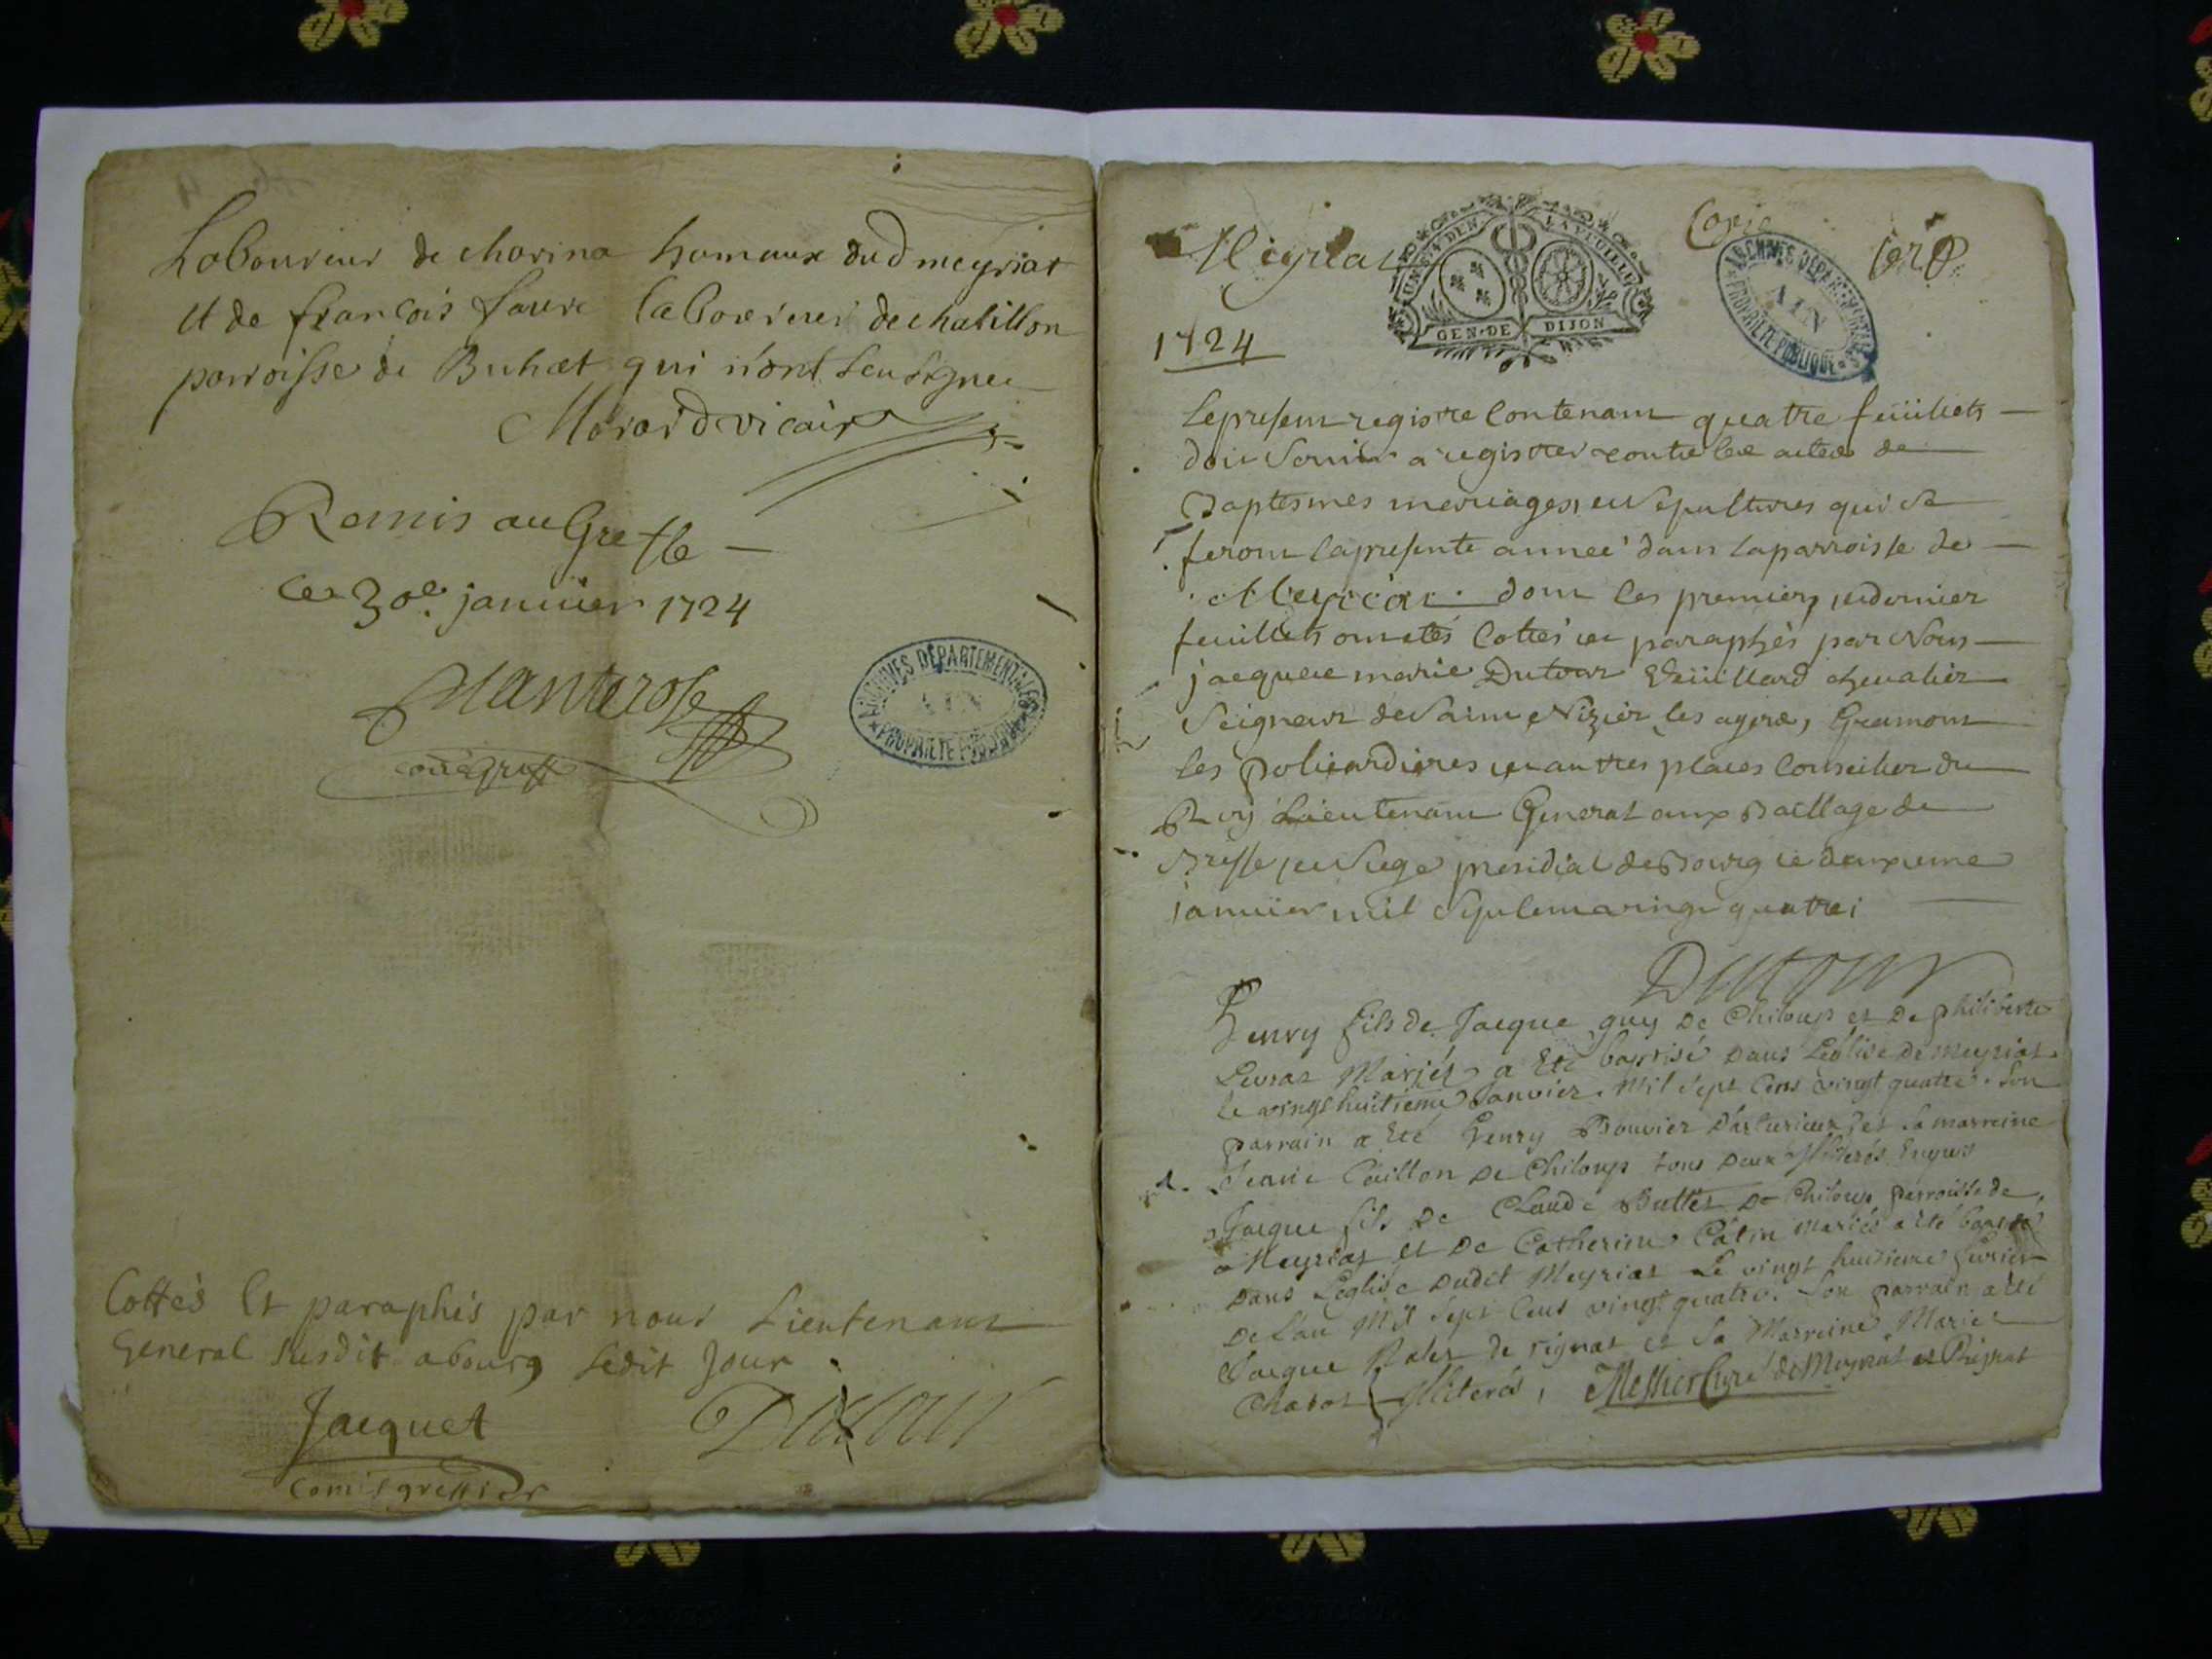 Laboureur de charina hameaux dud meyriat
et de françois favre laboureur de chatillon
parroisse de Buhæt qui n'ont sceu signer
Morard vicair
Remis au Greffe
ce 30e janvier 1724
Chanterose
ARCHIVES DEPARTEMENTALES
AIN
PROPRIETE PUBLIQUE
Cottés Et paraphés par nous Lieutenant
General susdit a bourg ledit Jour
Jacquet
Dutour
Comis greffier
Meyriat
UN S. 4 DEN. LA FEUILLE
GEN. DE DIJON
Copie
1er
ARCHIVES DEPARTEMENTALES
AIN
PROPRIETE PUBLIQUE
1724
Le present registre Contenant quatre feüillets
doit Servir a registrer toutes les actes de
Baptesmes mariages et Sepultures qui se
feront la presente année dans la parroisse de
Meyriat dont les premier et dernier
feuillets ont etés Cottés et paraphés par Nous
jacques marie Dutour Vuillard chevalier
Seigneur de Saint Nizier les Gramont
les et autres places Conseiller du
Roy Lieutenant General aux Baillage de
Bresse et Siege presidial de Bourg le deuxieme
janvier mil Sept cent vingt quatre
Dutour
Henry fils de Jacque guy De Chiloup et De philiberte
Levrat Mariés a Eté baptisé Dans L'église de meyriat
le vingt huitieme Janvier Mil sept Cens vingt quatre. Son
parrain a Eté Henry Bouvier et sa marreine
Jeanne Caillon De Chiloup tous Deux Illiterés
Jacque fils De Claude Buttet De Chiloup parroisse de
Meyriat et De Catherine Catin Mariés a Eté baptisé
Dans L'église Dudit Meyriat Le vingt huitieme fevrier
De L'an Mil Sept Cens vingt quatre. Son parrain a Eté
Jacque de rignat et Sa Marreine Marie
Chatot Illiterés, Messier Curé de Meyriat et Rignat